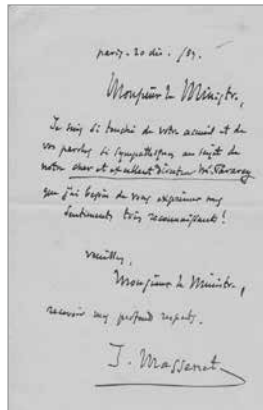 paris. 20 déc. /89.
Monsieur le Ministre,
Je suis si touché de votre accueil et de
vos paroles si sympathiques au sujet de
notre cher et excellent directeur M. Paravey
que j'ai besoin de vous exprimer mes
sentiments très reconnaissants !
veuillez,
Monsieur le Ministre,
recevoir mes profonds respects.
J. Massenet